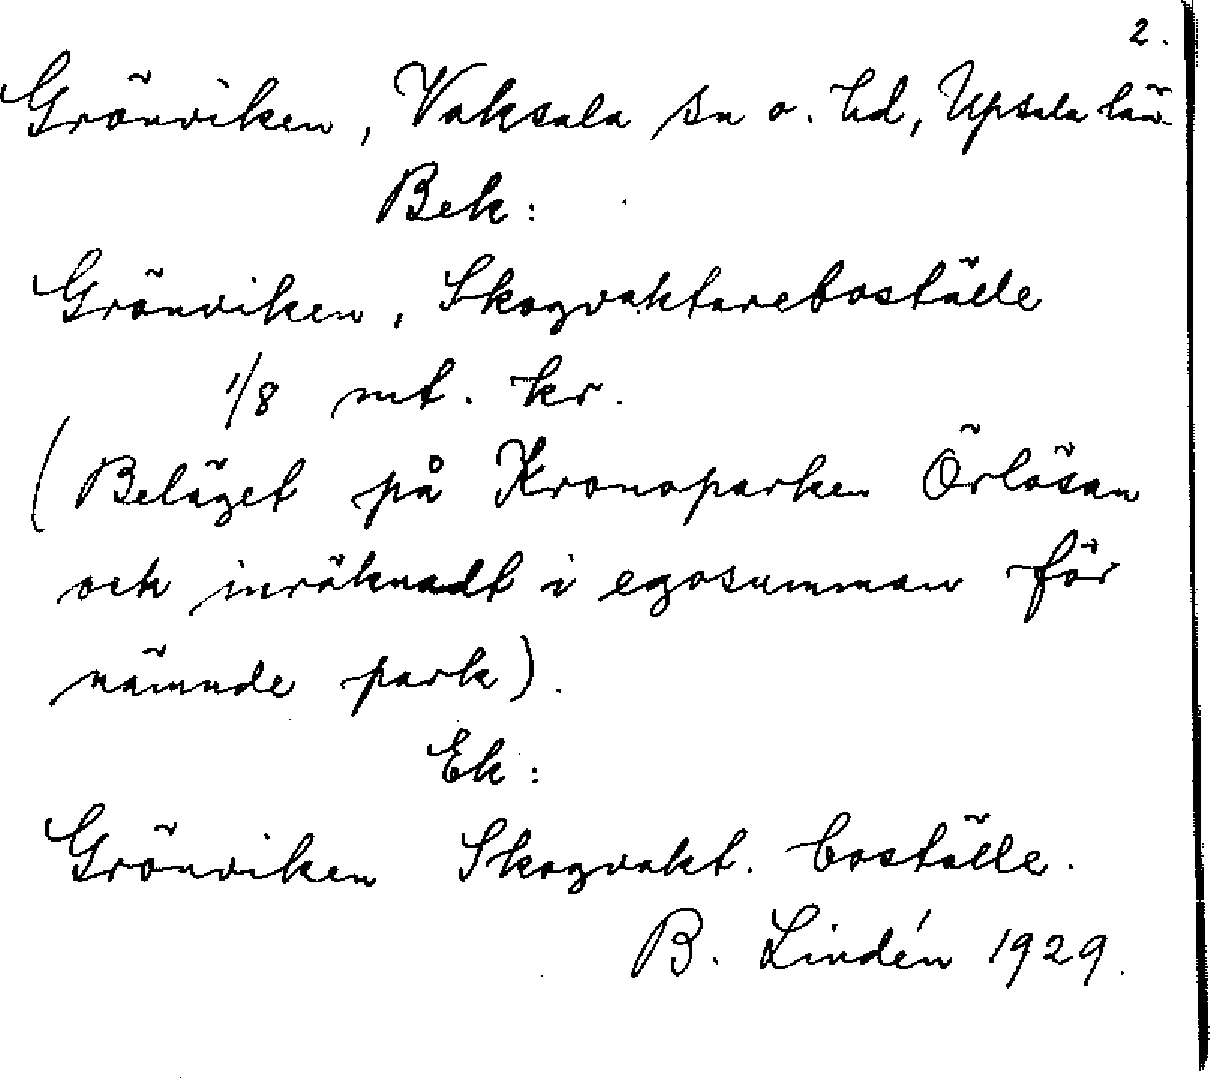 2.
Grönviken, Vaksala sn o. hd, Upsala län.
Bek:
Grönviken, Skogvaktareboställe
1/8 mt. kr.
(Beläget på Kronoparken Örlösan
och inräknadt i egosumman för
nämnde park).
Ek:
Grönviken Skogvakt. boställe.
B. Lindén 1929.